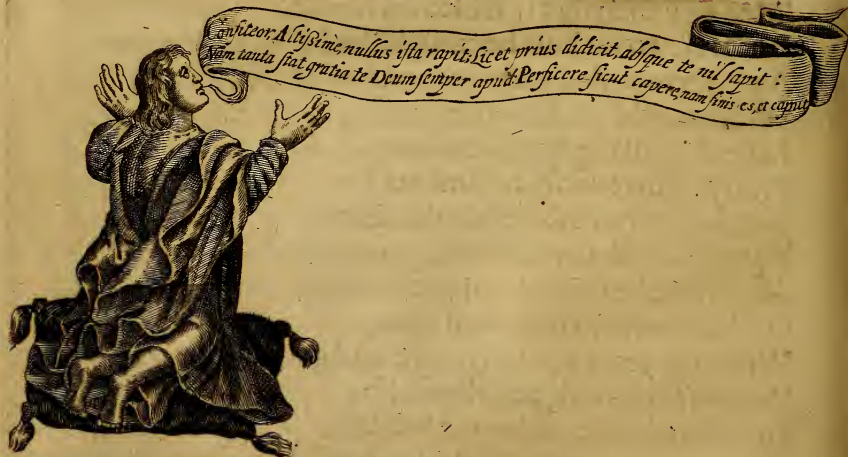 Confiteor, Altiſsime, nullus iſta rapit; Licet prius didicit, abſque te nil ſapit :
Nam tanta ſtat gratia te Deum ſemper apud: Perficere ſicut capere, nam finis es, et caput